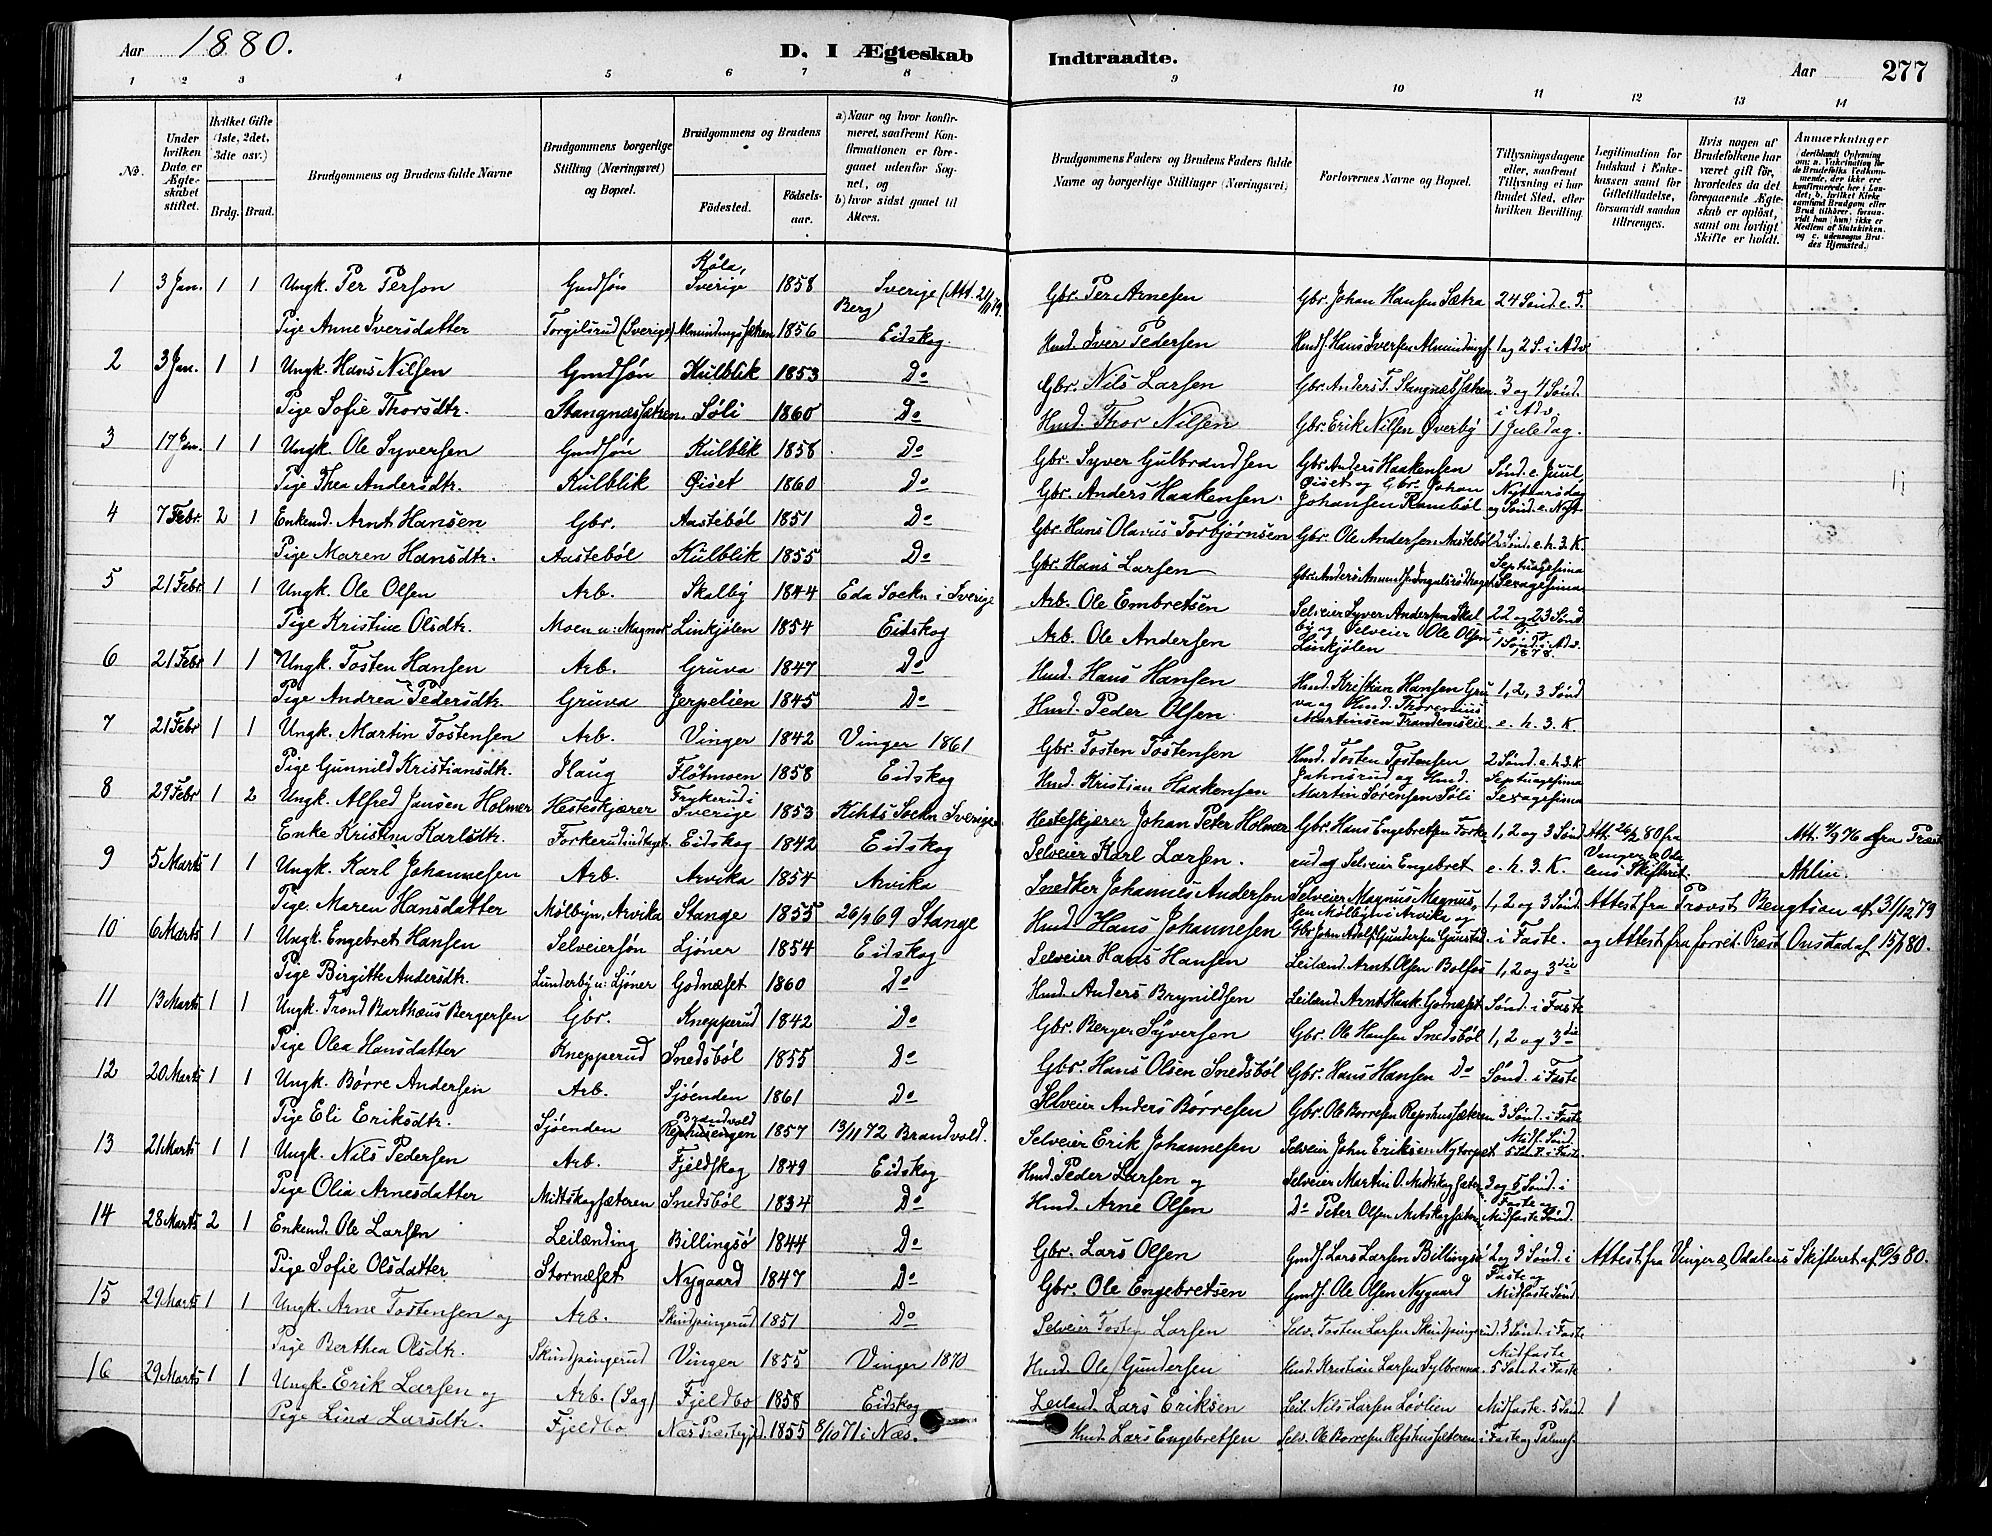 Aar 1880. D. I Ægteskab Indtraadte. Aar 277
1 2 3 4 5 6 7 8 9 10 11 12 13 14
No.
Under hvilken Dato er Ægteskabet stiftet.
Hvilket Gifte (1ste, 2det, 3die osv.)
Brdg. Brud.
Brudgommens og Brudens fulde Navne
Brudgommens borgerlige Stilling (Næringsvei) og Bopæl.
Brudgommens og Brudens
Födested. Födselsaar.
a) Naar og hvor konfirmeret, saafremt Konfirmationen er foregaaet udenfor Sognet, og
b) hvor sidst gaaet til Alters.
Brudgommens Faders og Brudens Faders fulde Navne og borgerlige Stillinger (Næringsvei)
Forlovernes Navne og Bopæl.
Tillysningsdagene eller, saafremt Tillysning ei har fundet Sted, efter hvilken Bevilling.
Legitimation for Indskud i Enkekassen samt for Giftetilladelse, forsaavidt saadan tiltrænges.
Hvis nogen af Brudefolkene har været gift för, hvorledes da det foregaaende Ægteskab er oplöst, samt om lovligt Skifte er holdt.
Anmærkninger
1 3 Jan. 1 1 Ungk. Per Person Gmdsøn Køla, Sverige 1858 Sverige (Att. 2/11 79. Berg) Gbr. Per Arnesen Gbr. Johan Hansen Sætra 24 Sönd. e. T.
Pige Anne Iversdatter Torgilsrud (Sverige) Almindingssæteren 1856 Eidskog Hmd. Iver Pedersen Hmds. Hans Iversen Almindings. 1 og 2 S. i Adv.
2 3 Jan. 1 1 Ungk. Hans Nilsen Gmdsøn Kulblik 1853 Do Gbr. Nils Larsen Gbr. Anders T. Stangnæssæteren 3 og 4 Sönd. i Adv.
Pige Sofie Thorsdtr. Stangnæssæteren Søli 1860 Do Hmd. Thor Nilsen Gbr. Erik Nilsen Øverby 1 Juledag.
3 17 Jan. 1 1 Ungk. Ole Syversen Gmdsøn Kulblik 1858 Do Gbr. Syver Gulbrandsen Gbr. Anders Haakensen Sønd. e. Juul
Pige Thea Andersdtr. Kulblik Øiset 1860 Do Gbr. Anders Haakensen. Øiset og Gbr. Johan Johansen Rambøl Nytaarsdag og Sönd. e. Nyt.
4 7 Febr. 2 1 Enkemd. Arnt Hansen Gbr. Aastebøl 1851 Do Gbr. Hans Olavus Torbjørnsen Gbr. Ole Andersen Aastebøl 2 Sønd. e. h. 3. K.
Pige Maren Hansdtr. Aastebøl Kulblik 1855 Do Gbr. Hans Larsen Septuagesima Sexagesima
5 21 Febr. 1 1 Ungk. Ole Olsen Arb. Skalby 1844 Eda Sockn i Sverige Arb. Ole Embretsen Selveier Syver Andersen Skal 22 og 23 Sönd
Pige Kristine Olsdtr. Moen u: Magnor Linkjølen 1854 Eidskog Arb. Ole Andersen by og Selveier Ole Olsen Linkjølen e. T. 1 Sønd. i Adv. 1878.
6 21 Febr 1 1 Ungk. Tosten Hansen Arb. Gruva 1847 Do Hmd. Hans Hansen Hmd. Kristian Hansen Gru 1, 2, 3 Sönd
Pige Andrea Pedersdtr. Gruva Jerpelien 1845 Do Hmd. Peder Olsen va og Hmd. Thorenius Martinsen e. h. 3. K.
7 21 Febr 1 1 Ungk. Martin Tostensen Arb. Vinger 1842 Vinger 1861 Gbr. Tosten Tostensen Hmd. Tosten Tostensen 2 Sönd. e. h. 3. K
Pige Gunnild Kristiansdtr. Haug Fløtmoen 1858 Eidskog Hmd. Kristian Haakensen Jahnsrud og Hmd. Martin Sörensen Söli Septuagesima Sexagesima
8 29 Febr 1 2 Ungk. Alfred Jansen Holmer Hesteskjærer Frykerud i Sverige 1853 Sockn Sverige Hesteskjærer Johan Peter Holmer Gbr. Hans Engebretsen Forke 1, 2 og 3 Sönd Att. 26/2 80 fra Vinger & Odalens Skifteret. Att. 4/9 76 fra Præst Ahlin.
Enke Kristine Karlsdtr. Eidskog 1842 Eidskog Selveier Karl Larsen. rud og Selveier Engebret e. h. 3. K.
9 5 Marts 1 1 Ungk. Karl Johannesen Arb. Arvika 1854 Arvika Snedker Johannes Anderson Selveier Magnus Magnus, 1, 2 og 3 Sönd. Attest fra Provst Bengtson af 31/12 79
Pige. Maren Hansdatter Mølbyn, Arvika Stange 1855 26/9 69 Stange Hmd. Hans Johannesen sen Mølbyn i Arvika og Gbr. John Adolf Gundersen Gaustad. i Faste. og Attest fra forret. Præst Onsdad af 15/1 80.
10 6 Marts 1 1 Ungk. Engebret Hansen Selveiersøn Ljøner 1854 Eidskog Selveier Hans Hansen Leilænd. Arnt Olsen Bolfos 1, 2 og 3die
Pige Birgitte Andersdtr. Lunderby u: Ljøner Godnæset 1860 Do Hmd. Anders Brynildsen Leilænd. Arnt Haak. Godnæset Sönd. i Faste
11 13 Marts 1 1 Ungk. Trond Barthæus Bergersen Gbr. Knepperud 1842 Do Gbr. Berger Syversen Gbr. Ole Hansen Snedsböl 1, 2 og 3die
Pige Olea Hansdatter Knepperud Snedsböl 1855 Do Gbr. Hans Olsen Snedsböl Gbr. Hans Hansen Do Sønd. i Faste
12 20 Marts 1 1 Ungk. Börre Andersen Arb. Sjöenden 1861 Do Selveier Anders Börresen Gbr. Ole Borresen Repshussæteren 3 Sönd. i Faste
Pige Eli Eriksdtr. Sjöenden Brandvold 1857 13/11 72 Brandvold. Selveier Erik Johannesen Selveier John Eriksen Nytorpet Midf. Sönd. 5 Sönd. i Faste.
13 21 Marts 1 1 Ungk. Nils Pedersen Arb. Fjeldskog 1849 Eidskog Hmd. Peder Larsen og Selveier Martin O. Midtskogsæter 3 og 5 Sönd. i
Pige Olia Arnesdatter Mittskogsæteren Snedsböl 1834 Do Hmd. Arne Olsen Do Peter Olsen Mitskogsæter Faste og Midfaste Sönd.
14 28 Marts 2 1 Enkemd. Ole Larsen Leilænding Billingsö 1844 Do Gbr. Lars Olsen Gmds. Lars Larsen Billingsö 2 og 3 Sönd. i Attest fra Vinger & Odalens Skifteret af 6/3 80.
Pige Sofie Olsdatter Stornæset Nygaard 1847 Do Gbr. Ole Engebretsen Gmds. Ole Olsen Nygaard Faste og Midfaste Sönd
15 29 Marts 1 1 Ungk. Arne Tostensen og Arb. Skindpungerud 1851 Do Selveier Tosten Larsen Selv. Tosten Larsen Skindpungerud. 3 Sönd. i Faste
Pige Berthea Olsdtr. Skindpungerud Vinger 1855 Vinger 1870 Hmd. Ole Gundersen Hmd. Kristian Larsen Midfaste 5 Sönd. i Faste
16 29 Marts 1 1 Ungk. Erik Larsen og Arb. (Sag) Fjeldbo 1858 Eidskog Leilænd. Lars Eriksen Leil. Nils Larsen Lövlien Midfaste. 5 Sönd. 1
Pige Lina Larsdtr. Fjeldbo Næs Præstegjd. 1855 8/10 71 i Næs. Hmd. Lars Engebretsen Selv. Ole Borresen Repshussæteren i Faste og Palmes.